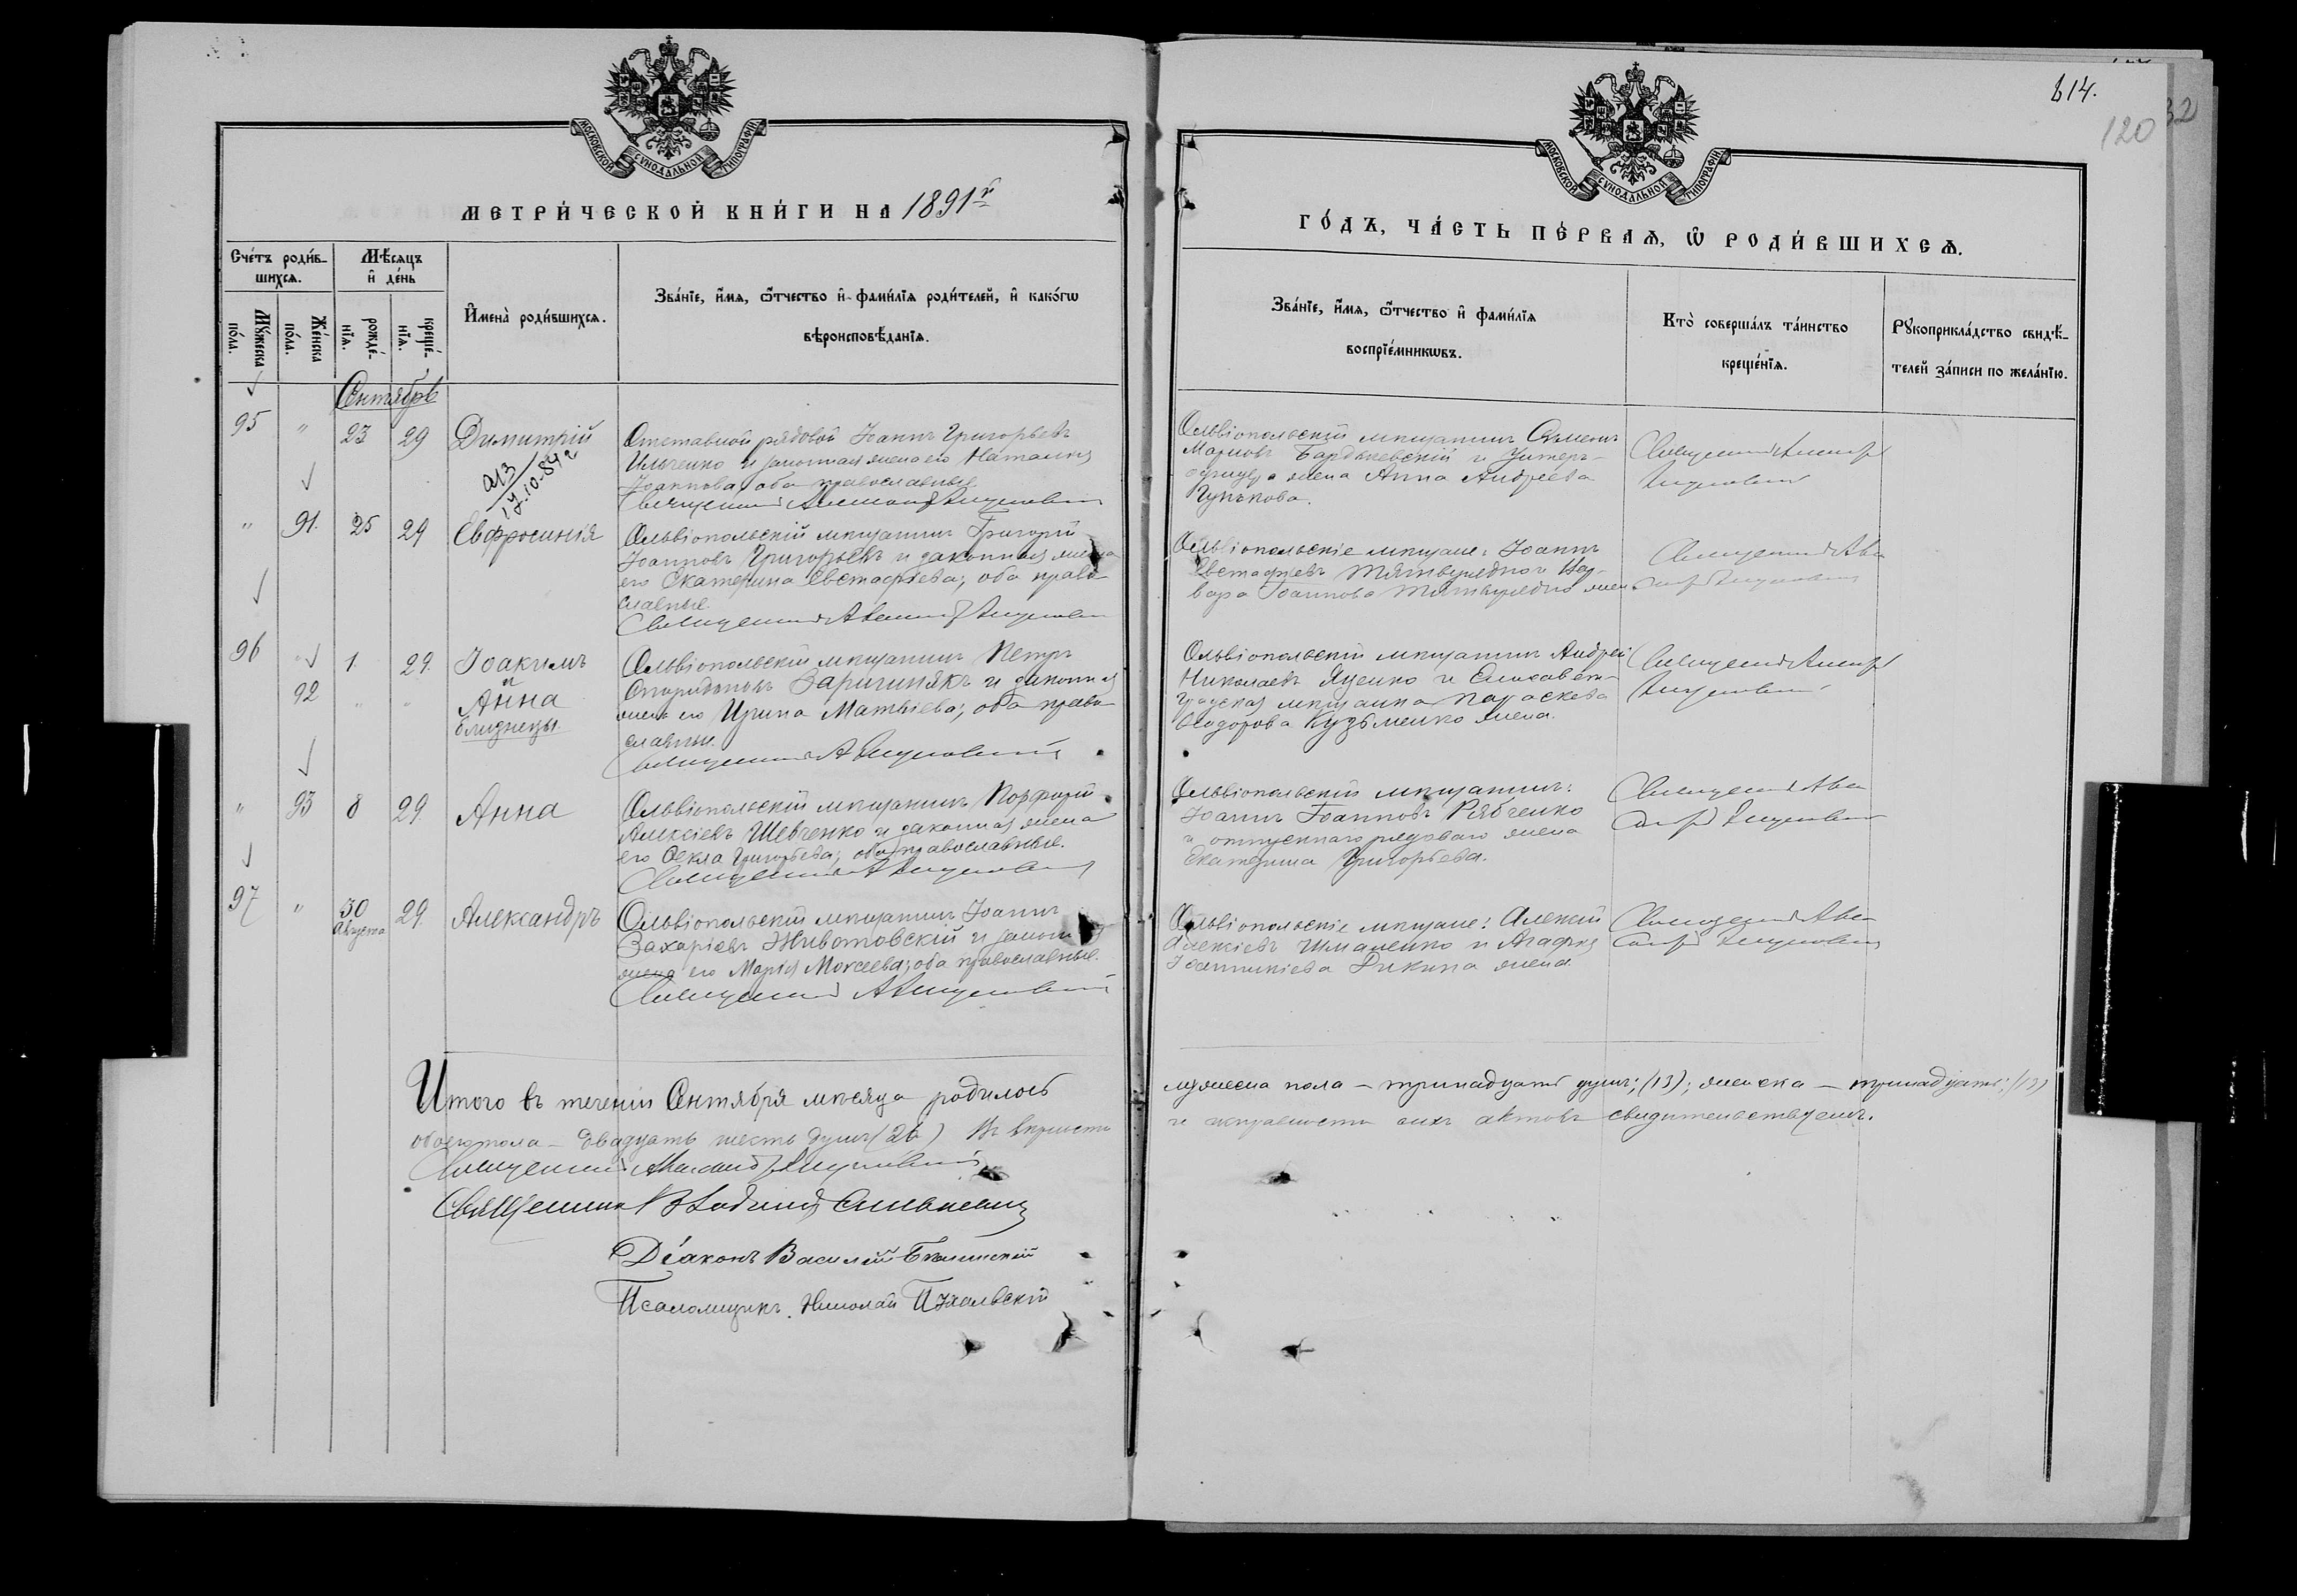 МОСКОВСКОЙ СУНОДАЛЬНОЙ ТИПОГРАФІИ
МЕТРИ́ЧЕСКОЙ КНИ́ГИ НА 1891 г
Сче́тъ роди́в-
шихсѧ.
Мѣ́сѧцъ
и҆ де́нь
И҆мена̀ роди́вшихсѧ.
Зва́нїе, и҆́мѧ, ѻ҆́тчество и҆ фами́лїѧ роди́телей, и҆ како́гѡ
вѣроисповѣ́данїѧ.
Мꙋ́жеска
по́ла.
Же́нска
по́ла.
рожде́-
нїѧ.
креще́-
нїѧ.
Сентябрь
95 " 23 29 Димитрій
Отставной рядовой Іоаннъ Григорьевъ
Ильченко и законная жена его Наталія
Іоаннова; оба православные.
Священникъ
17.10.84 г
" 91. 25 29 Евфросинія
Ольвіопольскій мѣщанинъ Григорій
Іоанновъ Григорьевъ и законная жена
его Екатерина Евстафіева; оба право-
славные.
Священникъ
96 " 1. 29. Іоакимъ
и
92 " " Анна
близнецы
Ольвіопольскій мѣщанинъ Петръ
Спиридоновъ Заричинякъ и законная
жена его Ирина Матвіева; оба право-
славные.
Священникъ
" 93 8 29. Анна
Ольвіопольскій мѣщанинъ Порфирій
Алексіевъ Шевченко и законная жена
его Ѳекла Григорьева; оба православные.
Священникъ
97 " 30 29. Александръ
Августа
Ольвіопольскій мѣщанинъ Іоаннъ
Захаріевъ Животовскій и законная
жена его Марія Моисеева; оба православные.
Священникъ
Итого въ теченіи Сентября мѣсяца родилось
обоего пола – двадцать шесть душъ (26) Въ вѣрности
Священникъ
Священникъ Владимір
Діаконъ Василій
Псаломщикъ. Николай
614.
120
32
МОСКОВСКОЙ СУНОДАЛЬНОЙ ТИПОГРАФІИ
ГО́ДЪ, ЧА́СТЬ ПЕ́РВАѦ, Ѡ҆ РОДИ́ВШИХСѦ.
Зва́нїе, и҆́мѧ, ѻ҆́тчество и҆ фами́лїѧ
воспрїе́мникѡвъ.
Кто̀ соверша́лъ та́инство
креще́нїѧ.
Рꙋкоприкла́дство свидѣ́-
телей за́писи по жела́нїю.
Ольвіопольскій мѣщанинъ Сѵмеонъ
Марковъ и Унтеръ-
офицера жена Анна Андреева
Священникъ
Ольвіопольскіе мѣщане: Іоаннъ
Евстафіевъ и
Іоаннова жена.
Священникъ
Ольвіопольскій мѣщанинъ Андрей
Николаевъ Яценко и Елисавет-
градская мѣщанка Параскева
Ѳеодорова Кузьменко жена.
Священникъ
Ольвіопольскій мѣщанинъ:
Іоаннъ Іоанновъ Рябченко
и отпускнаго рядоваго жена
Екатерина Григорьева.
Священникъ
Ольвіопольскіе мѣщане: Алексій
Алексіевъ Шманенко и Агафія
Іоанникіева Дикина жена.
Священникъ
мужеска пола – тринадцать душъ; (13); женска – тринадцать: (13)
и исправности сихъ актовъ свидѣтельствуемъ.